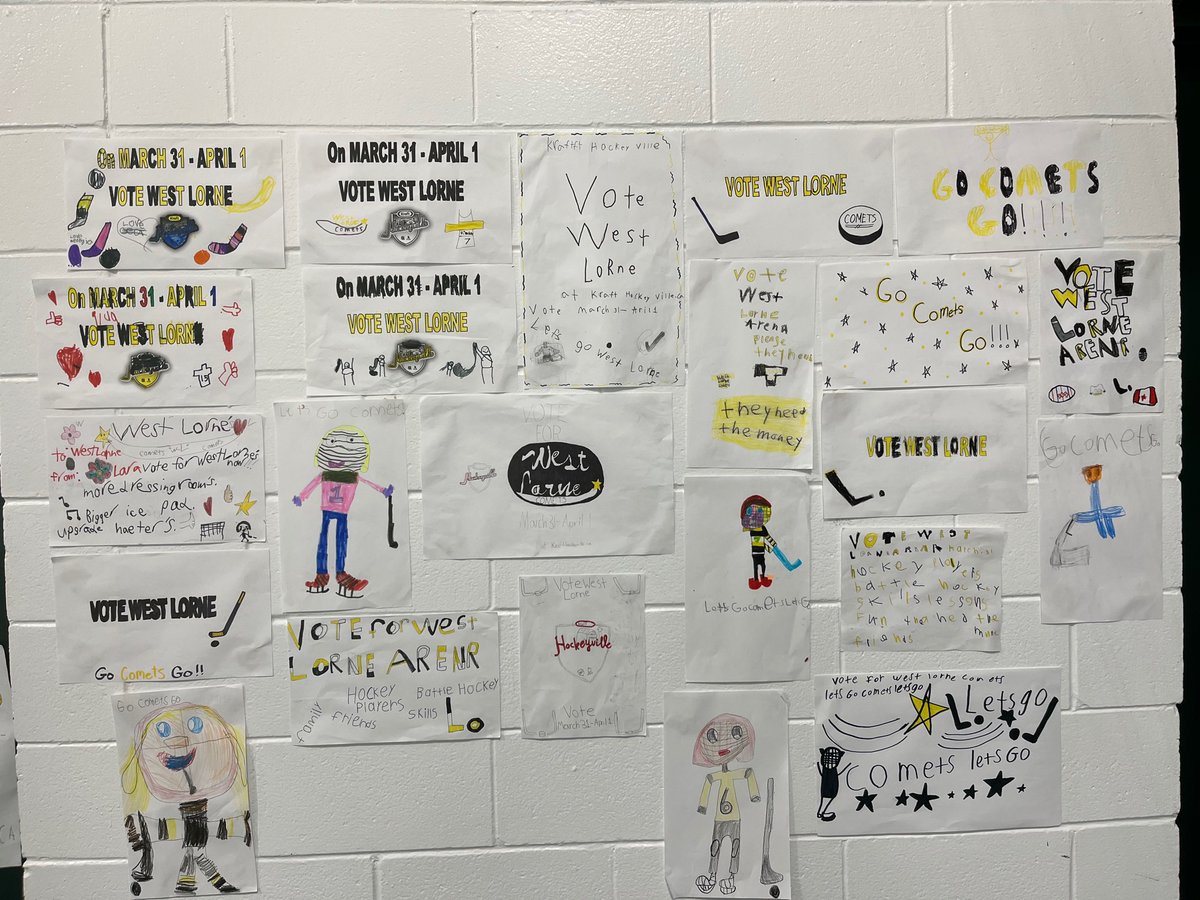 On MARCH 31 - APRIL 1
VOTE WEST LORNE
LOVE
On MARCH 31 - APRIL 1
VOTE WEST LORNE
Comets
7
Kraftft Hockey ville
Vote
West
LoRne
at Kraft Hockey ville.ca
Vote march 31-April1
go West Lorne
VOTE WEST LORNE
COMETS
GO COMETS
GO!!!!
On MARCH 31 - APRIL 1
VOTE WEST LORNE
On MARCH 31 - APRIL 1
VOTE WEST LORNE
Vote
West
LORNE
Arena
please
they need
they need
the money
Go
Comets
Go!!!
VOTE
WEST
LORNE
ARENR.
West Lorne
to: West Lorne
from: Lara vote for West Lorne
now!!!
more dressing rooms.
Bigger ice pad.
upgrade haeters.
Let's GO comets!
1
VOTE
FOR
West
Lorne
COMETS
March 31-April 1
Hockeyville
VOTE WEST LORNE
Go comets Go
VOTE WEST LORNE
Go Comets Go!!
VOTE for WEST
LORNE ARENR
family
Hockey
players
friends
Battle Hockey
skills
Vote West
Lorne
Hockeyville
Vote
March 31-April 1
Lets Go comets Lets Go
VOTE WEST
hockey players
battle hockey
skills lessons
Fun
friends
GO Comets GO
6
vote for west lorne comets
lets Go comets lets go
Lets go
Comets lets GO